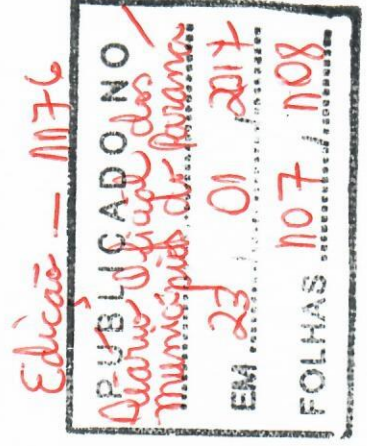 Edição — 1176
PUBLICADO NO
Diário Oficial dos /
Municípios do Paraná
EM 23 / 01 / 2017
FOLHAS 107 / 108